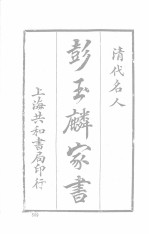 清代名人
彭玉麟家書
上海共和書局印行